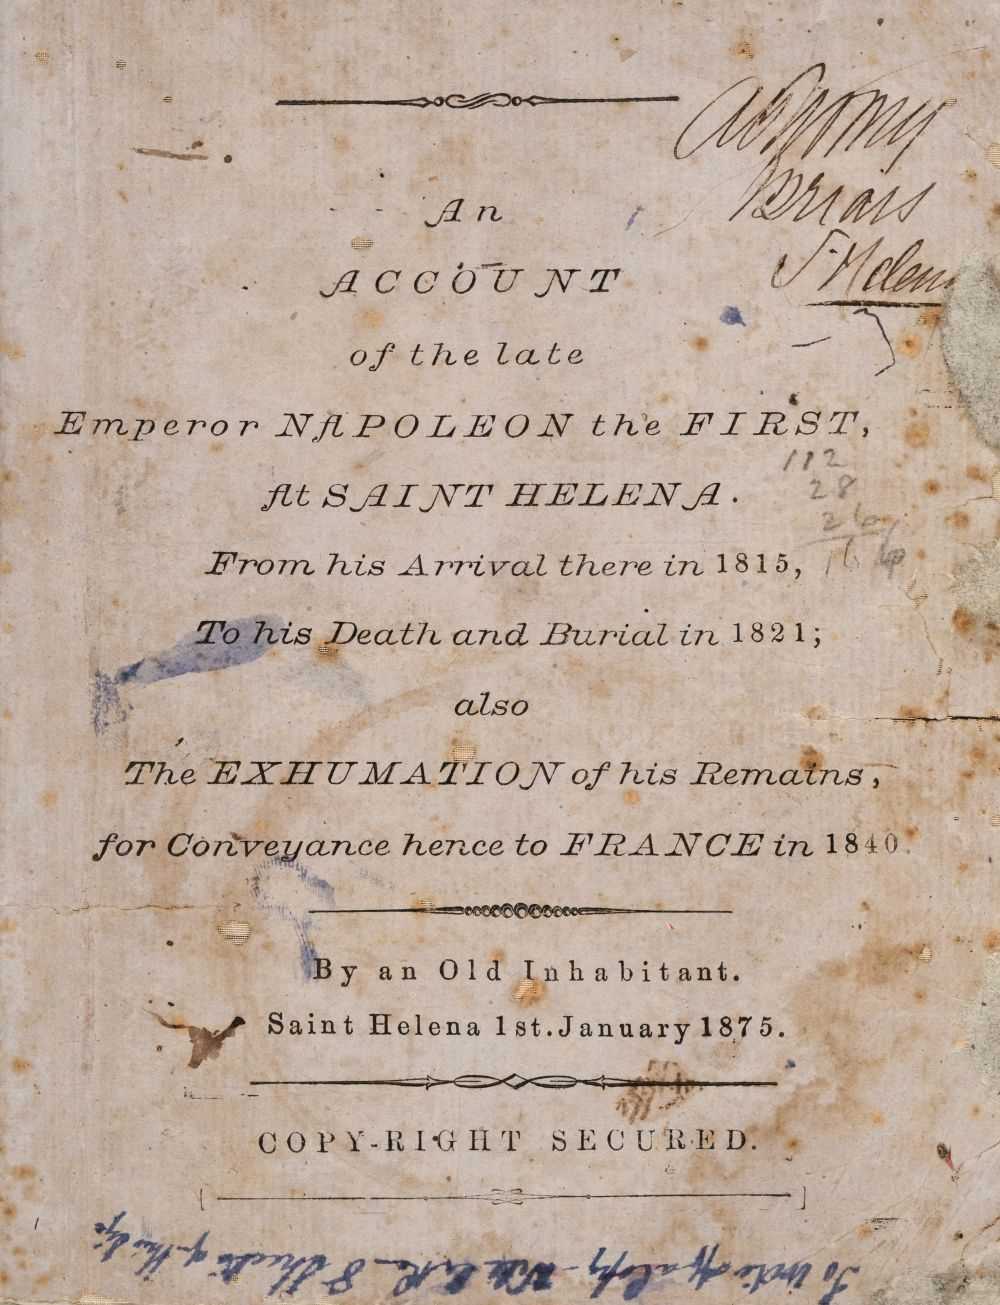 Briars
St Helena
An
ACCOUNT
of the late
Emperor NAPOLEON the FIRST,
At SAINT HELENA.
112
28
26
164
From his Arrival there in 1815,
To his Death and Burial in 1821;
also
The EXHUMATION of his Remains,
for Conveyance hence to FRANCE in 1840.
By an Old Inhabitant.
Saint Helena 1st. January 1875.
COPY-RIGHT SECURED.
To write off a copy 8 sheets of this size